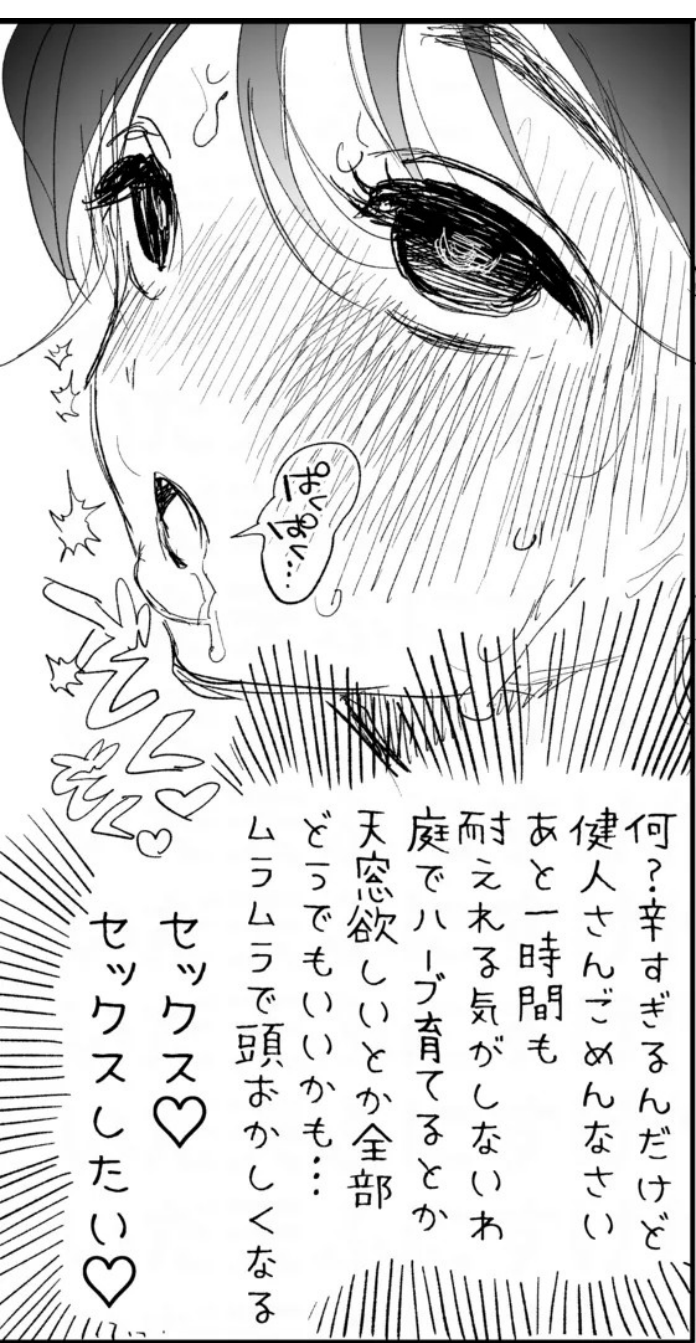 ぱくぱく…
ぞくぞく♡♡
何?辛すぎるんだけど
健人さんごめんなさい
あと一時間も
耐えれる気がしないわ
庭でハーブ育てるとか
天窓欲しいとか全部
どうでもいいかも…
ムラムラで頭おかしくなる
セックス♡
セックスしたい♡